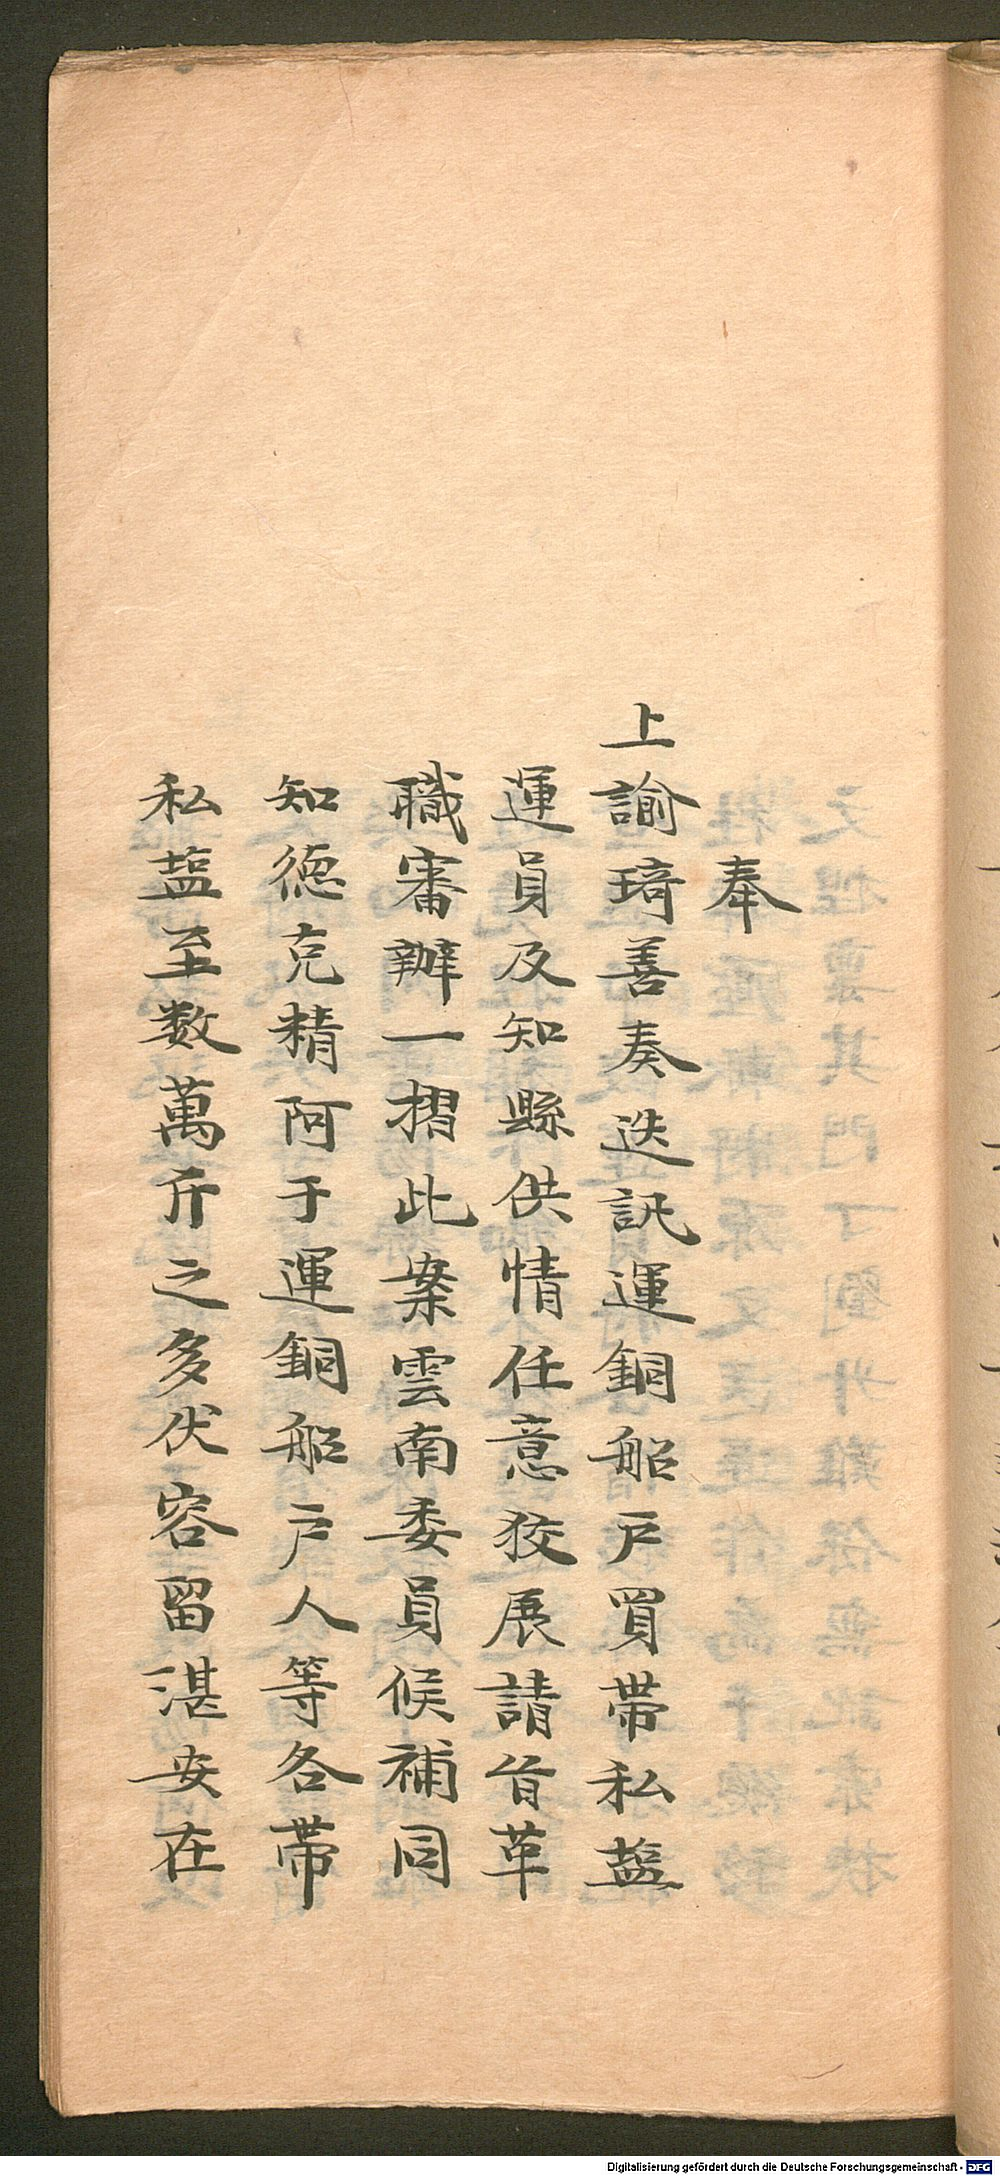 奉
上諭琦善奏迭訊運銅船戸買带私盐
運員及知縣供情任意狡展請旨革
職審辦一摺此案雲南委員候補同
知德克精阿于運銅船戸人等各带
私盐至数萬斤之多伏容留湛安在
Digitalisierung gefördert durch die Deutsche Forschungsgemeinschaft - DFG